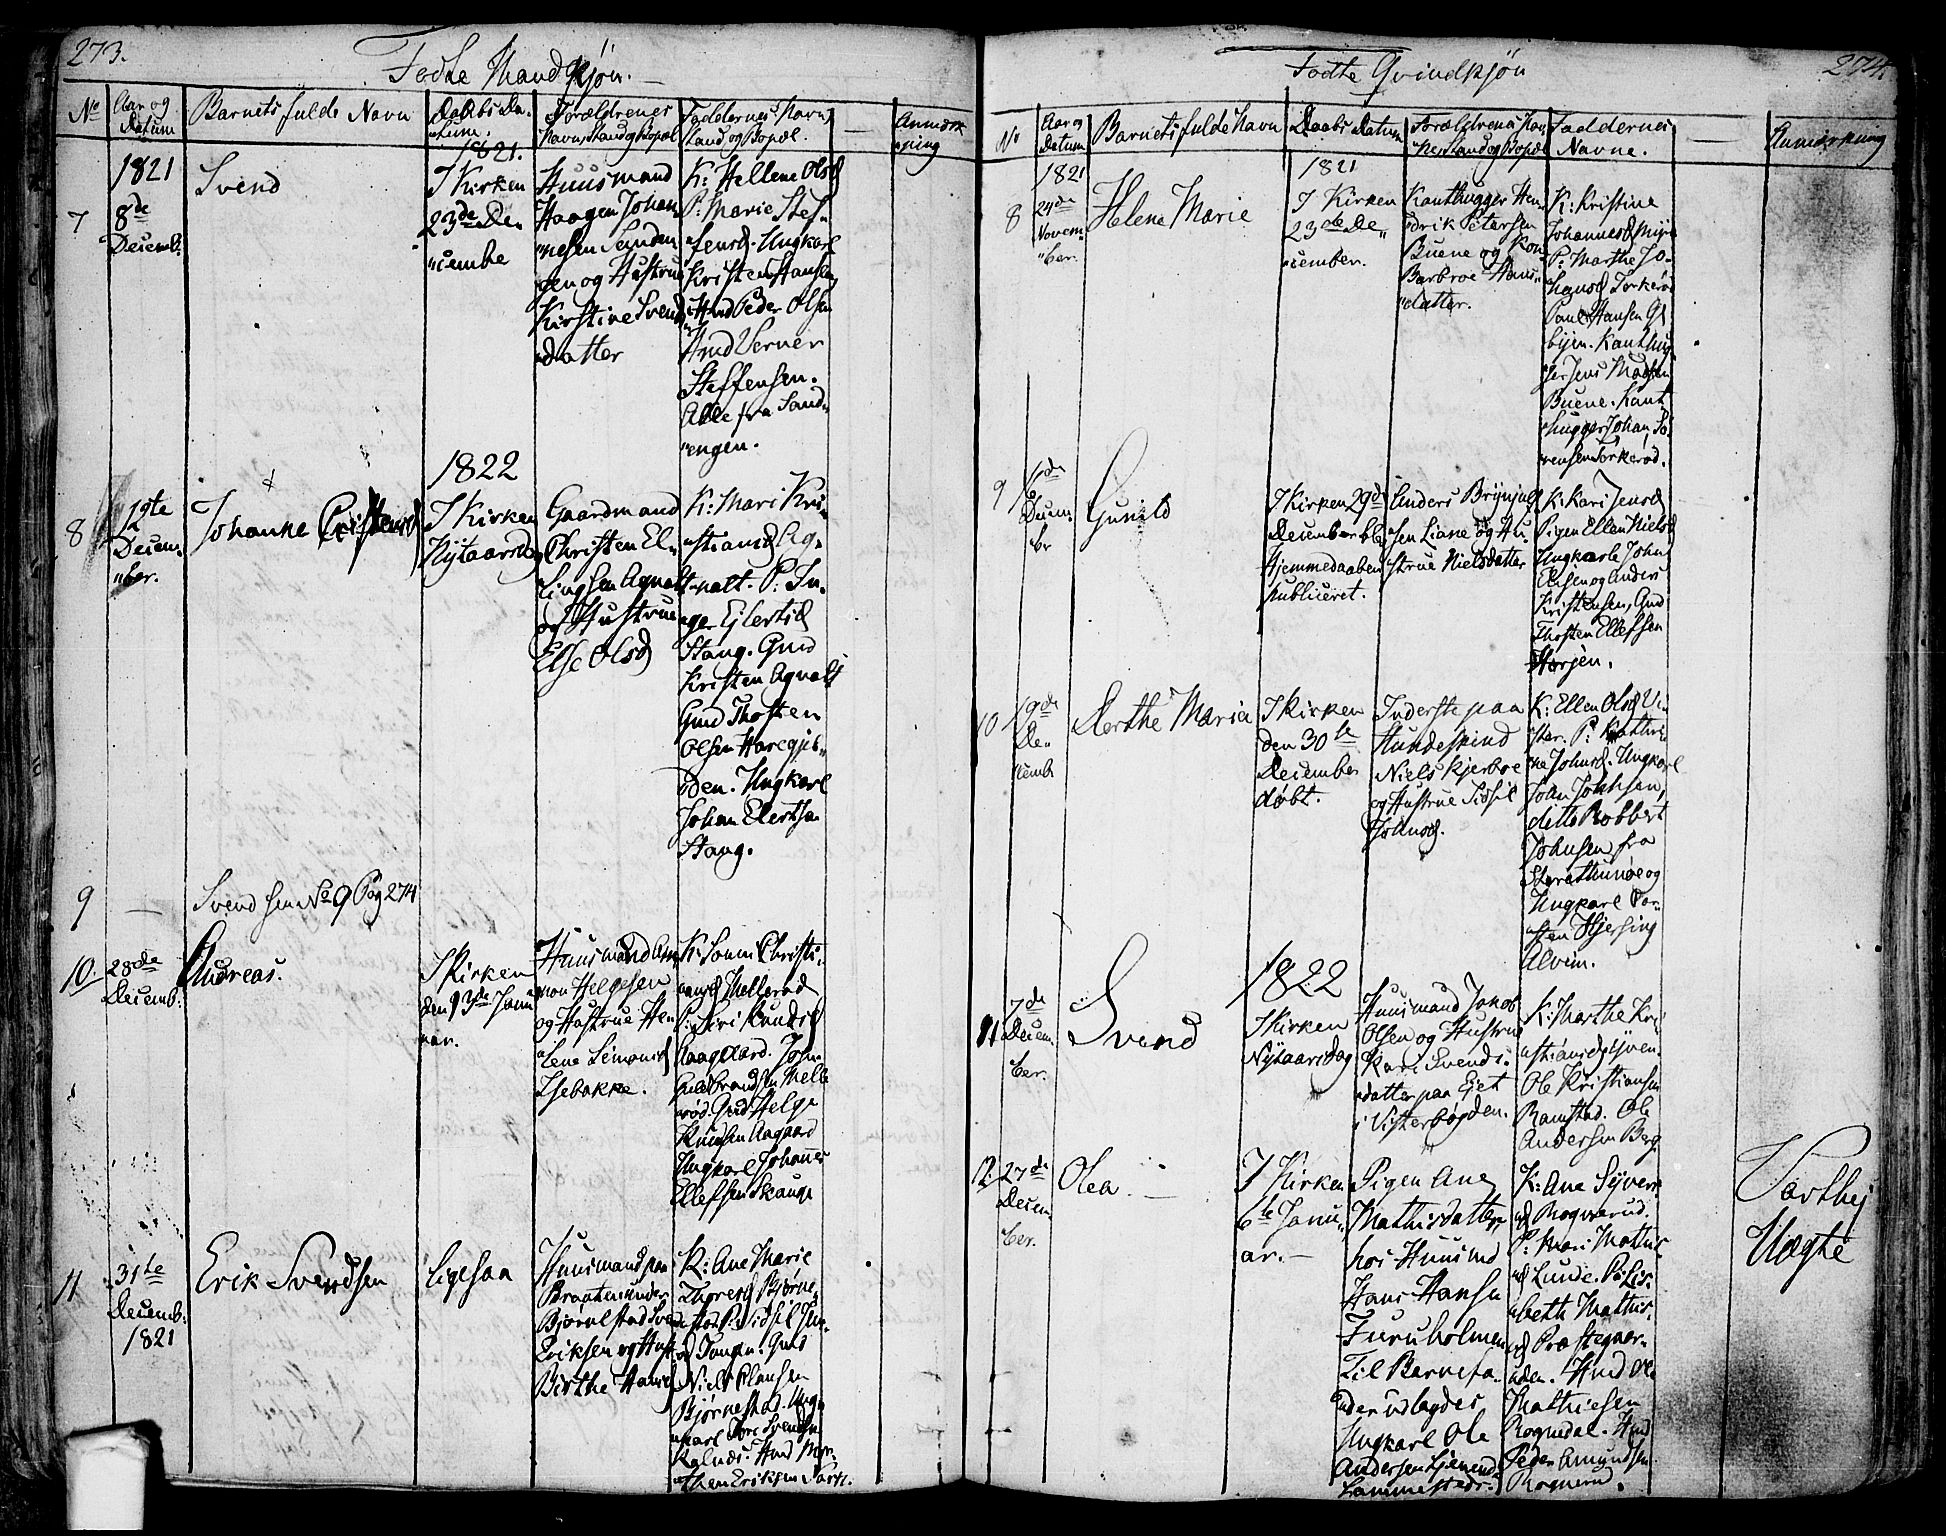 273.
Fødte Mandkjøn.
No
Aar og
Datum
Barnets fulde Navn
Daabs Da-
tum.
Forældrenes
Navn, Stand og Bopæl
Faddernes Navn,
Stand og Bopæl.
Anmærk
ning
1821
7
8de
Decemb:
Svend
1821.
I Kirken
23de De-
cembe
Huusmand
Haagen Johan
nesen Sanden-
gen og Hustrue
Kirstine Svend
datter
K: Hellene Olsd
P: Marie Stef-
fensd. Ungkarl
Kristen Hansen,
Hmd Peder Olsen
Hmd Verner
Steffensen.
Alle fra Sand-
engen.
8
12te
Decem-
ber.
Johanne Cristensd
1822
I Kirken
Nytaarsdag
Gaardmand
Christen El-
lingsen Agnalt
og Hustrue
Else Olsd
K: Mari Kri
stiansd Ag-
nalt. P: In-
ger Ejlertsd
Stang. Gmd
Kristen Agnalt
Gmd Thosten
Olsen Haregjeb-
den. Ungkarl
Johan Elertsen
Stang.
9
—
Svend see No 9 Pag 274
10.
28de
Decemb:
Andreas.
I Kirken
den 13de Janu
ar.
Huusmand Am
mon Helgesen
og Hustrue He-
lene Simonsd
Isebakke.
K: Christi-
ansd Mellerød
P: Siri Knudsd
Aagaard. John
Guldbrandsen Melle
rød. Gmd Helge
Knudsen Aagaard
Ungkarl Johanes
Ellefsen Skauge
11
31te
Decemb:
1821
Erik Svendsen
ligesaa
Huusmand paa
Braaten under
Bjørnstad Svend
Eriksen og Hust
Birthe Hansd
K: Ane Marie
Thoresd Bjørne-
stad. P: Sidsil
Tangen. Gmd
Niels Clausen
Bjørnestad. Ung
karl Tore Svendsen
Kalnæs. Hmd Mor-
then Eriksen
274.
Fødte Qvindkjøn
No
Aar og
Datum
Barnets fulde Navn
Daabs Datum
Forældrenes Nav
ne, Stand og Bopæl
Faddernes
Navne.
Anmærkning
1821
8
24de
Novem-
ber.
Helene Marie
1821
I Kirken
23de De-
cember.
Kanthugger Hen-
drik Petersen
Buene og Kone
Barbroe Hans-
datter.
K: Kristine
Johannesd
P: Marthe Jo-
hansd Torkerød
Paul Hansen
byen. Kanthug-
ger Jens Madsen
Buene. Kant
hugger Johan Sø-
rensen Torkerød.
9
16de
Decem-
br
Gunild
I Kirken 29de
December blev
Hjemmedaaben
Publiceret.
Anders Brynjul
sen Liane og Hu-
strue Nielsdatter
K: Kari Jensd
Pigen Ellen Nielsd
Ungkarle John
Elisen og Anders
Kristensen, Gmd
Thosten Ellefsen
Horgen.
10
19de
De-
cemb
Dorthe Maria
I Kirken
den 30te
December
døbt.
Inderste paa
Hundeskind
Niels Kjerboe
og Hustrue Sidsil
Johnsd.
K: Ellen Olsd Vi-
ker. P: Kathri
ne Johnsd. Ungkarl
John Johnsen,
ditto Robbert
Johnsen fra
og
Ungkarl Tor-
sten Hjersing
Alvim.
11
7de
Decem
ber.
Svend
1822
I Kirken
Nytaarsdag
Huusmand Jonas
Olsen og Hustrue
Kari Svends-
datter paa Ejet
i Visterbøgden.
K: Marthe Kri
stiansd
Ole Kristiansen
Ramstad. Ole
Andersen Berg
12
27de
Decem
ber.
Olea. —
I Kirken
6te Janu
ar. —
Pigen Ane
Mathisdatter
hos Huusmd
Hans Hansen
Furuholmen
Til Barnefa-
der udlagdes
Ungkarl Ole
Andersen
K: Ane Syvers
d Rognerud.
P: Mari Mathis
d Lunde. P: Lis-
beth Mathis-
d Præstegaar-
den. Hmd Ole
Mathiesen
Rognedal. Hmd
Peder Amundsen
Rognerud.
Varthej
Uægte